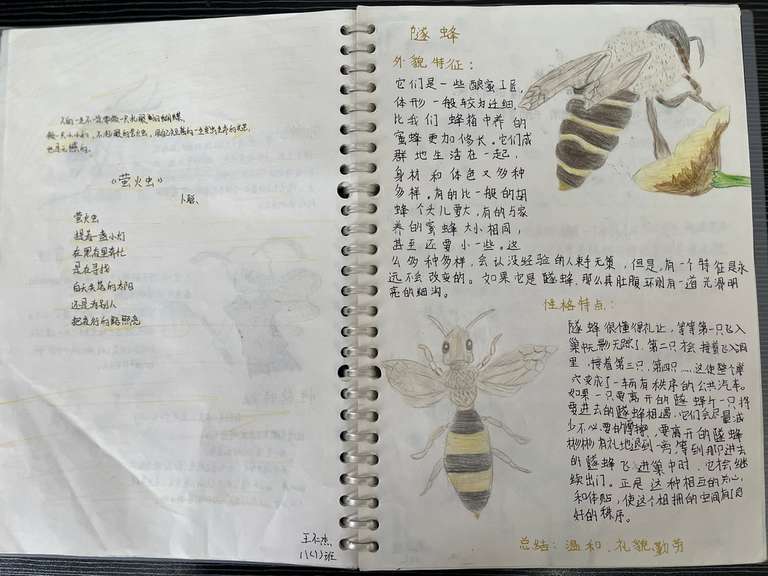 人的一生不一定要做一只扎眼的蝴蝶,
做一只小小的,不起眼的萤火虫,用自己
也是可
《萤火虫》
卜聪、
萤火虫
提着一盏小灯
在黑夜里奔忙
是在寻找
白天失落的太阳
还是为别人
把夜行的路照亮
王仁杰
八(1)班
隧蜂
外貌特征:
它们是一些酿蜜工匠,
体形一般较为纤细,
比我们蜂箱中养的
蜜蜂更加修长。它们成
群地生活在一起,
身材和体色又多种
多样。有的比一般的胡
蜂个头儿要大,有的与家
养的蜜蜂大小相同,
甚至还要小一些。这
么多种多样,会让没经验的人束手无策,但是,有一个特征是永
远不会改变的。如果它是隧蜂,那么其肚腹环则有一道光滑明
亮的细沟。
性格特点:
隧蜂很懂得礼让,等等第一只飞入
巢中无影无踪了,第二只才会接着飞入洞
里,接着第三只,第四只……这使整个巢
穴变成了一辆有秩序的公共汽车。
如果一只要离开的隧蜂与一只将
要进去的隧蜂相遇,它们会尽量减
少不必要的摩擦,要离开的隧蜂
彬彬有礼地退到一旁,等到那只进去
的隧蜂飞进巢中时,它才会继
续出门。正是这种相互的关心
和体贴,使这个相拥的空间有了良
好的秩序。
总结:温和、礼貌、勤劳